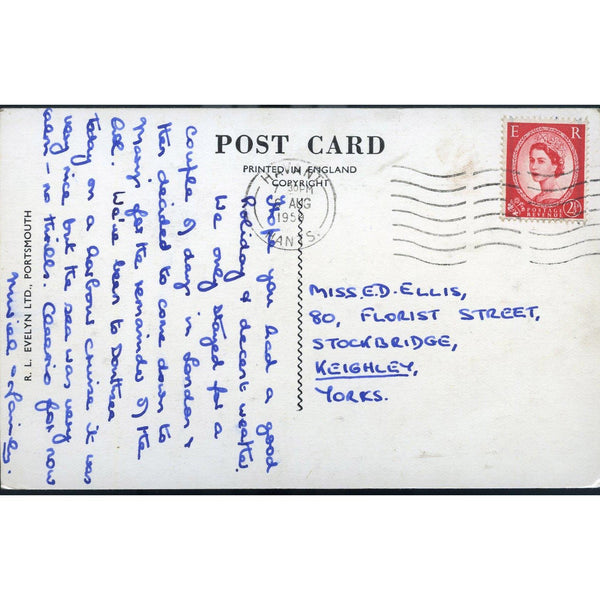 POST CARD
PRINTED IN ENGLAND
COPYRIGHT
E R
POSTAGE
REVENUE
2½D
7 30PM
6 AUG
195
HANTS.
R. L. EVELYN LTD., PORTSMOUTH
Hope you had a good
holiday & decent weather.
We only stayed for a
couple of days in London &
then decided to come down to
for the remainder of the
We've been to
today on a harbour cruise it was
very nice but the sea was very
calm - no thrills. Cheerio for now
Muriel & family.
MISS. E.D. ELLIS,
80, FLORIST STREET,
STOCKBRIDGE,
KEIGHLEY,
YORKS.